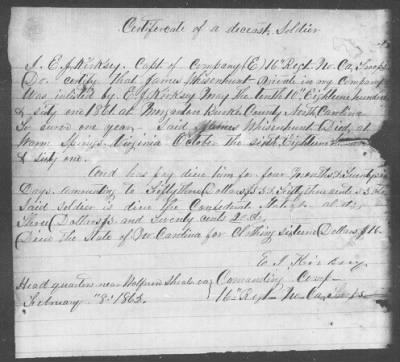 Certificate of a deceast Soldier
I. E. J. Kirksey. Capt of Company (E. 16th Regt No. Ca. Troops
(Do. certify that James Whisenhunt Private in my Company
Was inlisted by E. J. Kirksey May the tenth 10th Eighteen hundred
& sixty one 1861 at Morganton Burke County North Carolina
To serve one year. Said James Whisenhunt Died, at
Warm Springs, Virginia October the sixth Eighteen
& sixty one.
And has pay due him for four Months &
Days. amounting to Fifty three Dollars $53 & Fifty three cents
Said soldier is due the Confederate States
Three (Dollars $3 and Twenty cents 20 Cts.
(Due the State of No. Carolina for Clothing sixteen (Dollars $16.
E. J. Kirksey
Head quarters near Va. Comanding Comp
February "8" 1863. 16th Regt No. Ca.